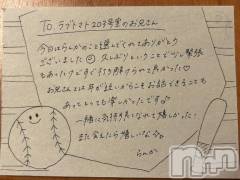 To. ラブトマト203号室のお兄さん
今日はらんかのこと選んでくれてありがとう
ございました☺ 久しぶりということで少し緊張
もあったのですぐ打ち解けられて良かった♡
お兄さんとは年が近いからこそお話できることも
あってとっても楽しかったです♪
一緒に気持ち良くなれて嬉しかった!
また会えたら嬉しいなぁ。
らんか